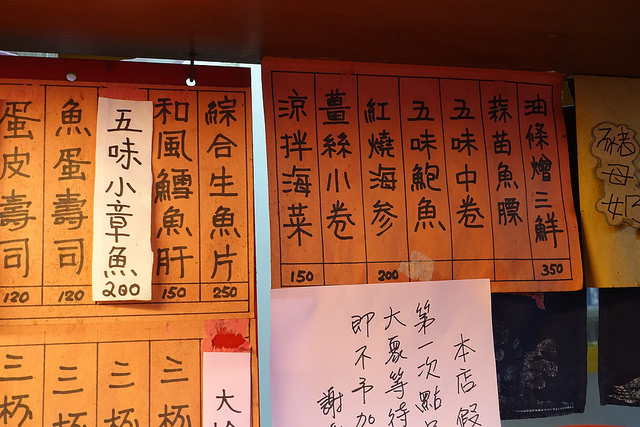 綜合生魚片
250
和風鱈魚肝
150
五味小章魚
200
魚蛋壽司
120
蛋皮壽司
120
油條燴三鮮
350
蒜苗魚膘
五味中卷
五味鮑魚
紅燒海参
200
薑絲小卷
涼拌海菜
150
豬母
本店假
第一次點
大眾等待
即不予加
謝
三杯
三杯
三杯
三杯
大